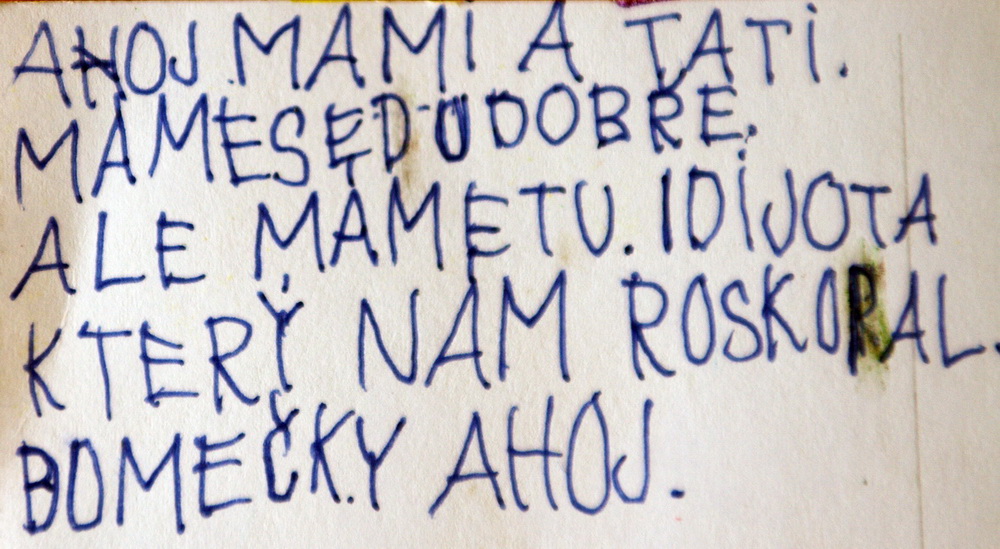 AHOJ MAMI A TATI.
MÁMESE DU DOBŘE.
ALE MÁME TU. IDIJOTA
KTERÝ NÁM ROSKOPAL.
DOMEČKY AHOJ.